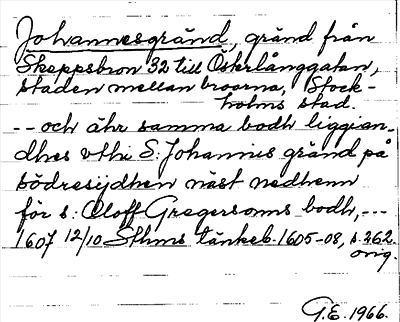 Johannesgränd, gränd från
Skeppsbron 32 till Österlånggatan,
staden mellan broarna, Stock-
holms stad.
-- och ähr samma bodh liggian-
dhes vthi S: Johannis gränd på
södresijdhen näst nedhenn
för s: Oloff Gregersonns bodh, ---
1607 12/10 Sthms tänkeb. 1605-08, s. 362.
orig.
G.E. 1966.